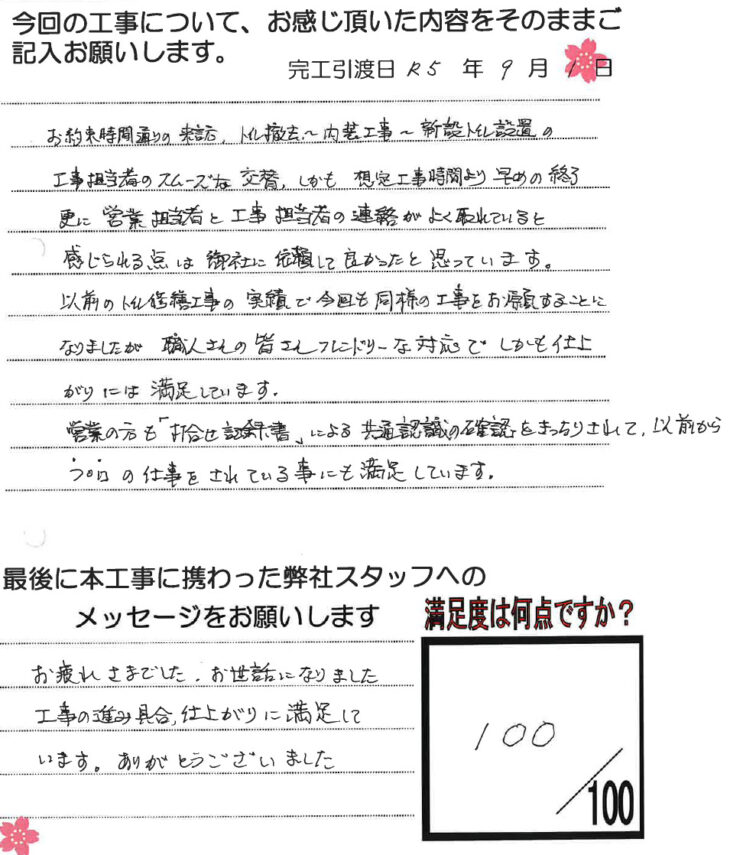 今回の工事について、お感じ頂いた内容をそのままご
記入お願いします。
完工引渡日 R5 年 9 月 1 日
お約束時間通りの来訪、トイレ撤去〜内装工事〜新設トイレ設置の
工事担当者のスムーズな交替、しかも想定工事時間より早めの終了
更に営業担当者と工事担当者の連絡がよく取れていると
感じられる点は御社に依頼して良かったと思っています。
以前のトイレ修繕工事の実績で今回も同様の工事をお願いすることに
なりましたが職人さんの皆さんフレンドリーな対応でしかも仕上
がりには満足しています。
営業の方も「打合せ記録書」による共通認識の確認をきっちりされて、以前から
プロの仕事をされている事にも満足しています。
最後に本工事に携わった弊社スタッフへの
メッセージをお願いします
満足度は何点ですか？
お疲れさまでした。お世話になりました
工事の進み具合、仕上がりに満足して
います。ありがとうございました
100
/100